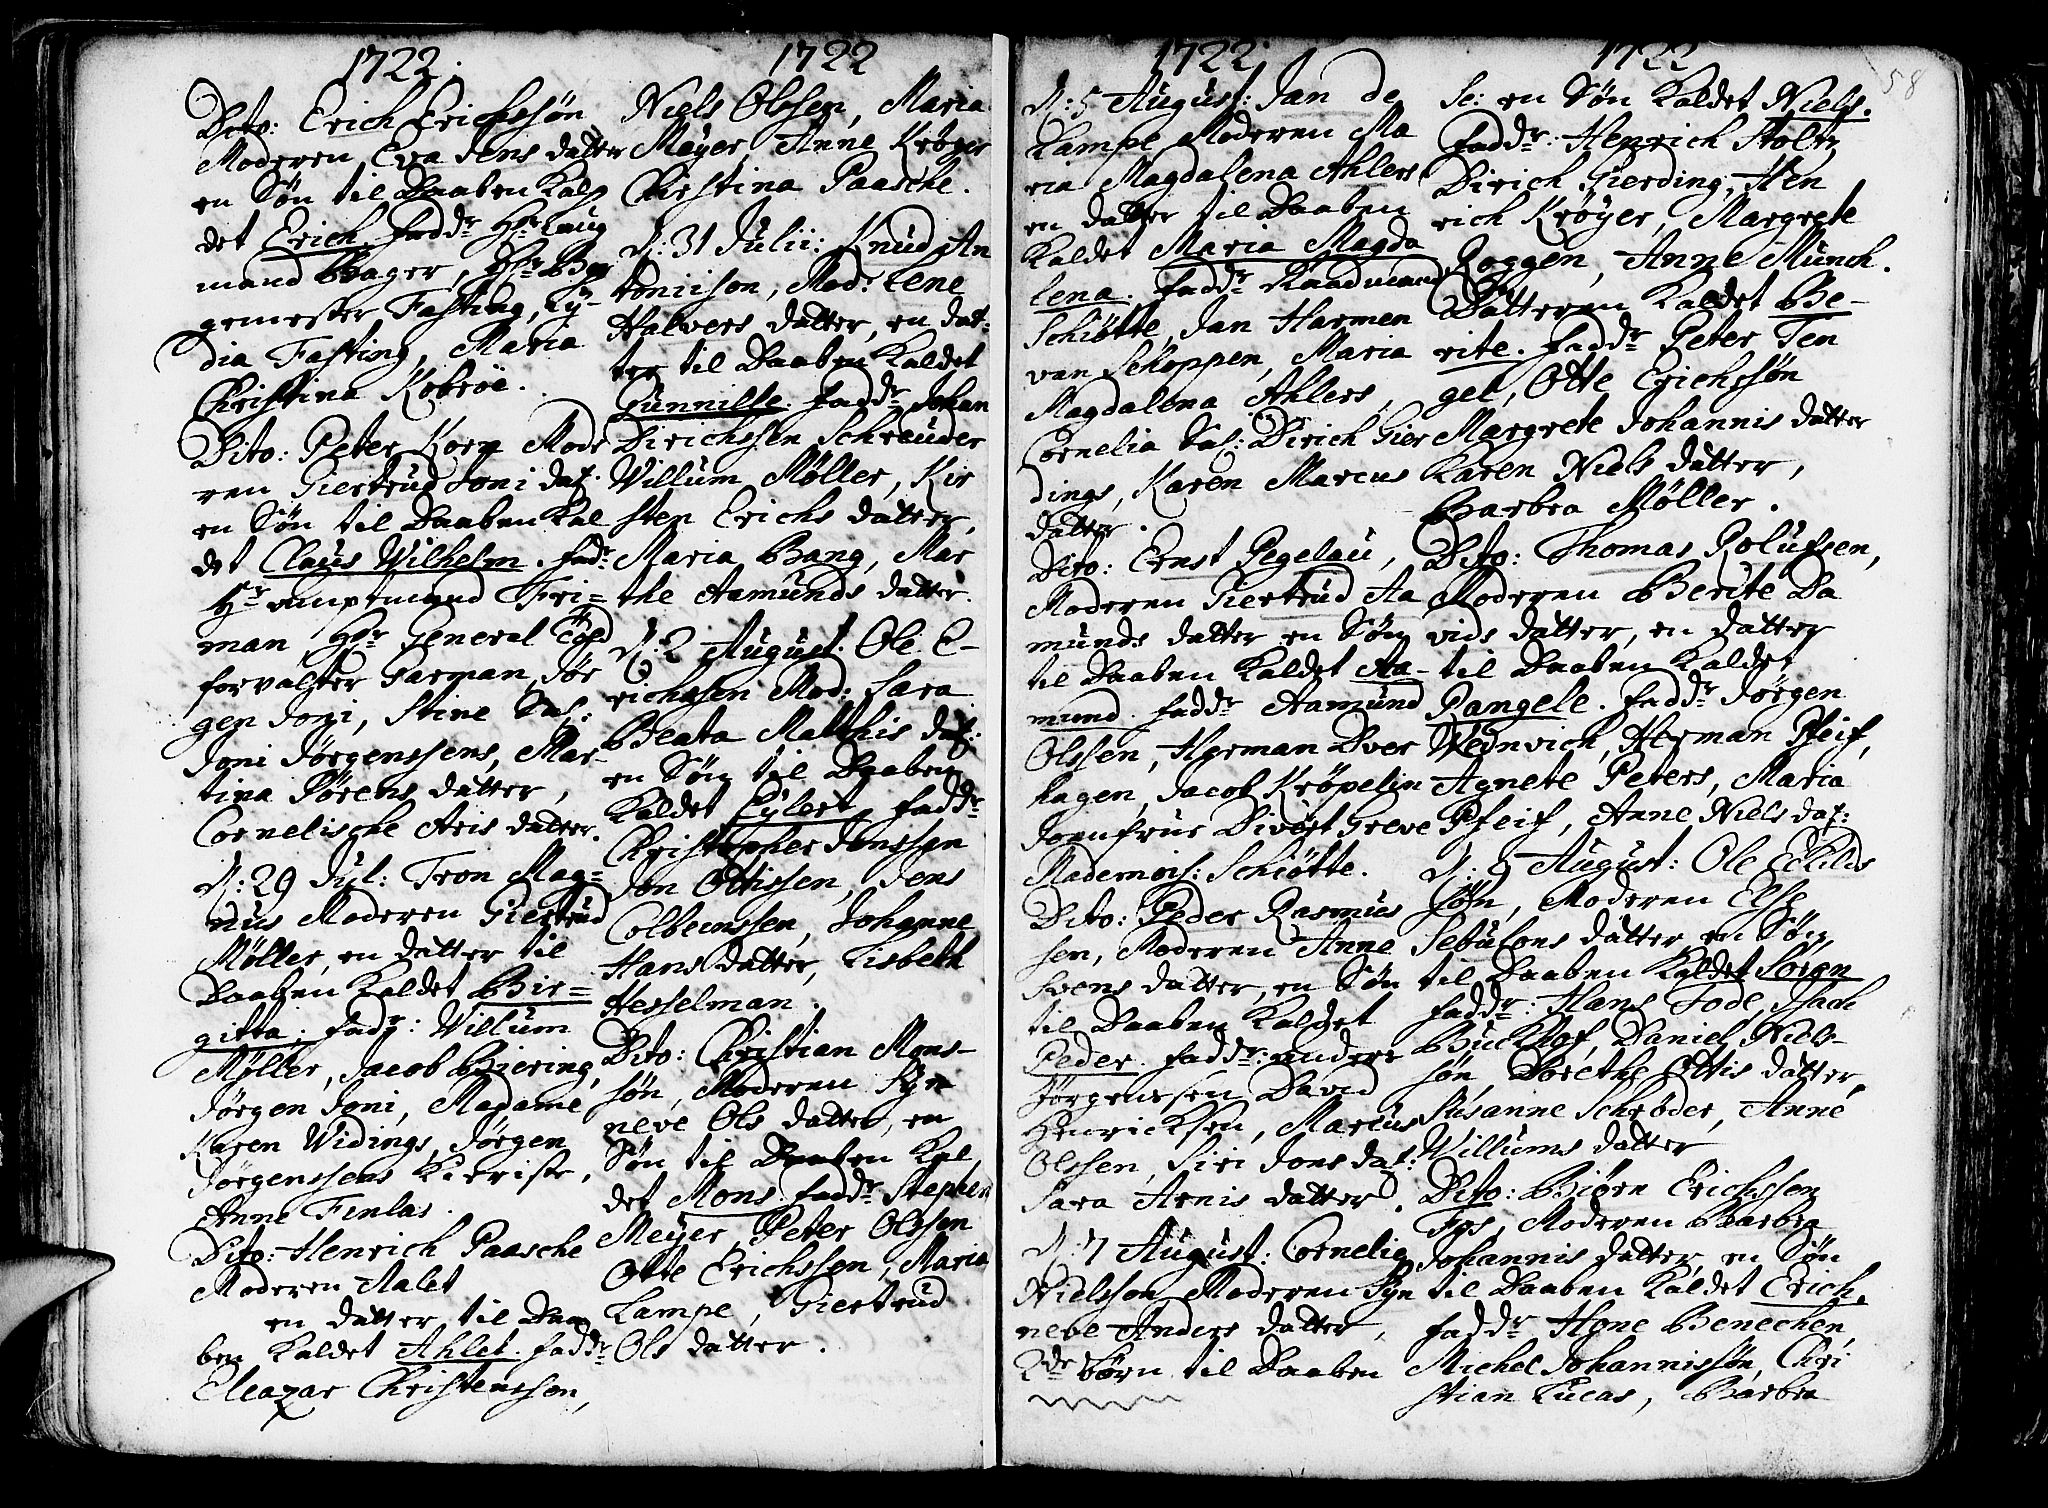 1722.
Dito: Erich Erichssøn
Moderen Eva Jens datter
en Søn til Daaben Kal
det Erich. fadd.r Hr: Laug
mand Bager, Hr: Bor
gemester Fasting, Ly-
dia Fasting, Maria
Christina Kobrøe.
Dito: Peter Korn Mode
ren Giertrud Joni dat.
en Søn til Daaben Kal
det Claus Wilhelm. fad.r
Hr. Hauptmand Fri=
man, Hr: General Told
forvalter Garman, Jør
gen Joni, Stine Sal:
Joni Jørgenssens, Mar-
tina Sørens datter,
Cornelische Aris datter.
d: 29 Jul: Tron Mag=
nus Moderen Giertrud
Møller, en datter til
Daaben Kaldet Bir=
gitta; fadr: Willum
Møller, Jacob Biering,
Jørgen Joni, Madame
Karen Widings, Jørgen
Jørgenssens Kieriste,
Anne Finlas.
Dito: Henrich Paasche
Moderen Aalet
en datter til Daa
ben Kaldet Ahlet. fadd.r
Eleazar Christenssøn,
1722
Niels Olssen, Maria
Meyer, Anne Krøger
Christina Paasche.
d: 31 Julii: Knud An
toniison, Mod: Lene
Halvers datter, en dat=
ter til Daaben Kaldet
Gunnille. fadd.r Johan
Dirichssen Schreuder
Willum Møller, Kir
sten Erichs datter,
Maria Bang, Mar
the Aamunds datter.
d: 2 August. Ole E-
richssen Mod: Sara
Beata Matthis dat:
en Søn til Daaben
Kaldet Eylert, fadd.r
Christopher Jonssen
Jon Ottissen, Jens
Colbeinssen, Johanne
Hans datter, Lisbeth
Hesselman.
Dito: Christian Mons-
søn, Moderen Syn
neve Ols datter, en
Søn til Daaben Kal
det Mons. fadd.r Stephen
Meyer, Peter Olssen
Otte Erichssen, Maria
Lampe, Giertrud
Ols datter.
1722.
d: 5 August: Jan de
Lampe Moderen Ma
ria Magdalena Ahlers
en datter til Daaben
Kaldet Maria Magda
lena. fadd.r Raadmand
Schiøtte, Jan Harmen
van Schoppen, Maria
Magdalena Ahlers,
Cornelia Sal: Dirich Gier
dings, Karen Marcus
datter.
Dito: Ernst Pegelau,
Moderen Giertrud Aa
munds datter en Søn
til Daaben Kaldet Aa-
mund. fadd.r Aamund
Olssen, Herman Over
hagen, Jacob Krøpelin
Jomfrue Divert Greve
Mademois: Schiøtte.
Dito: Peder Rasmus
sen, Moderen Anne
Svens datter, en Søn
til Daaben Kaldet
Peder. fadd.r: Anders
Jørgenssen David
Henricksen, Marcus
Olssen, Siri Jons dat:
Sara Arnis datter.
d: 7 August: Cornelie
Nielsson Moderen Syn
neve Anders datter,
2de Børn til Daaben
1722
58
Se: en Søn Kaldet Niels.
fadd.r: Henrich Stolt,
Dirich Gierding, Hen
rich Krøyer, Margrete
Roggen, Anne Munch.
Datteren Kaldet Be-
rite. fadd.r Peter Ten
gel, Otte Erichssøn
Margrete Johannis datter
Karen Niels datter,
Barbra Møller.
Dito: Thomas Rolufsen,
Moderen Berite Da
vids datter, en datter
til Daaben Kaldet
Pangele. fadd.r Jørgen
Wednvich, Herman Pfeif,
Agnete Peters, Maria
Pfeif, Anne Niels dat:
d: 9 August: Ole Eskilds
søn, Moderen Else
Sebulons datter, en Søn,
til Daaben Kaldet Søren
fadd.r: Hans Tode, Isach
Buckhof, Daniel Niels-
søn, Dorethe Ottis datter,
Susanne Schrøder, Anne
Willums datter
Dito: Biørn Erichssen
Fos, Moderen Barbra
Johannis datter, en Søn
til Daaben Kaldet Erich,
fadd.r Hane Benechen,
Michel Johannissøn, Chri
stian Lucas, Barbra